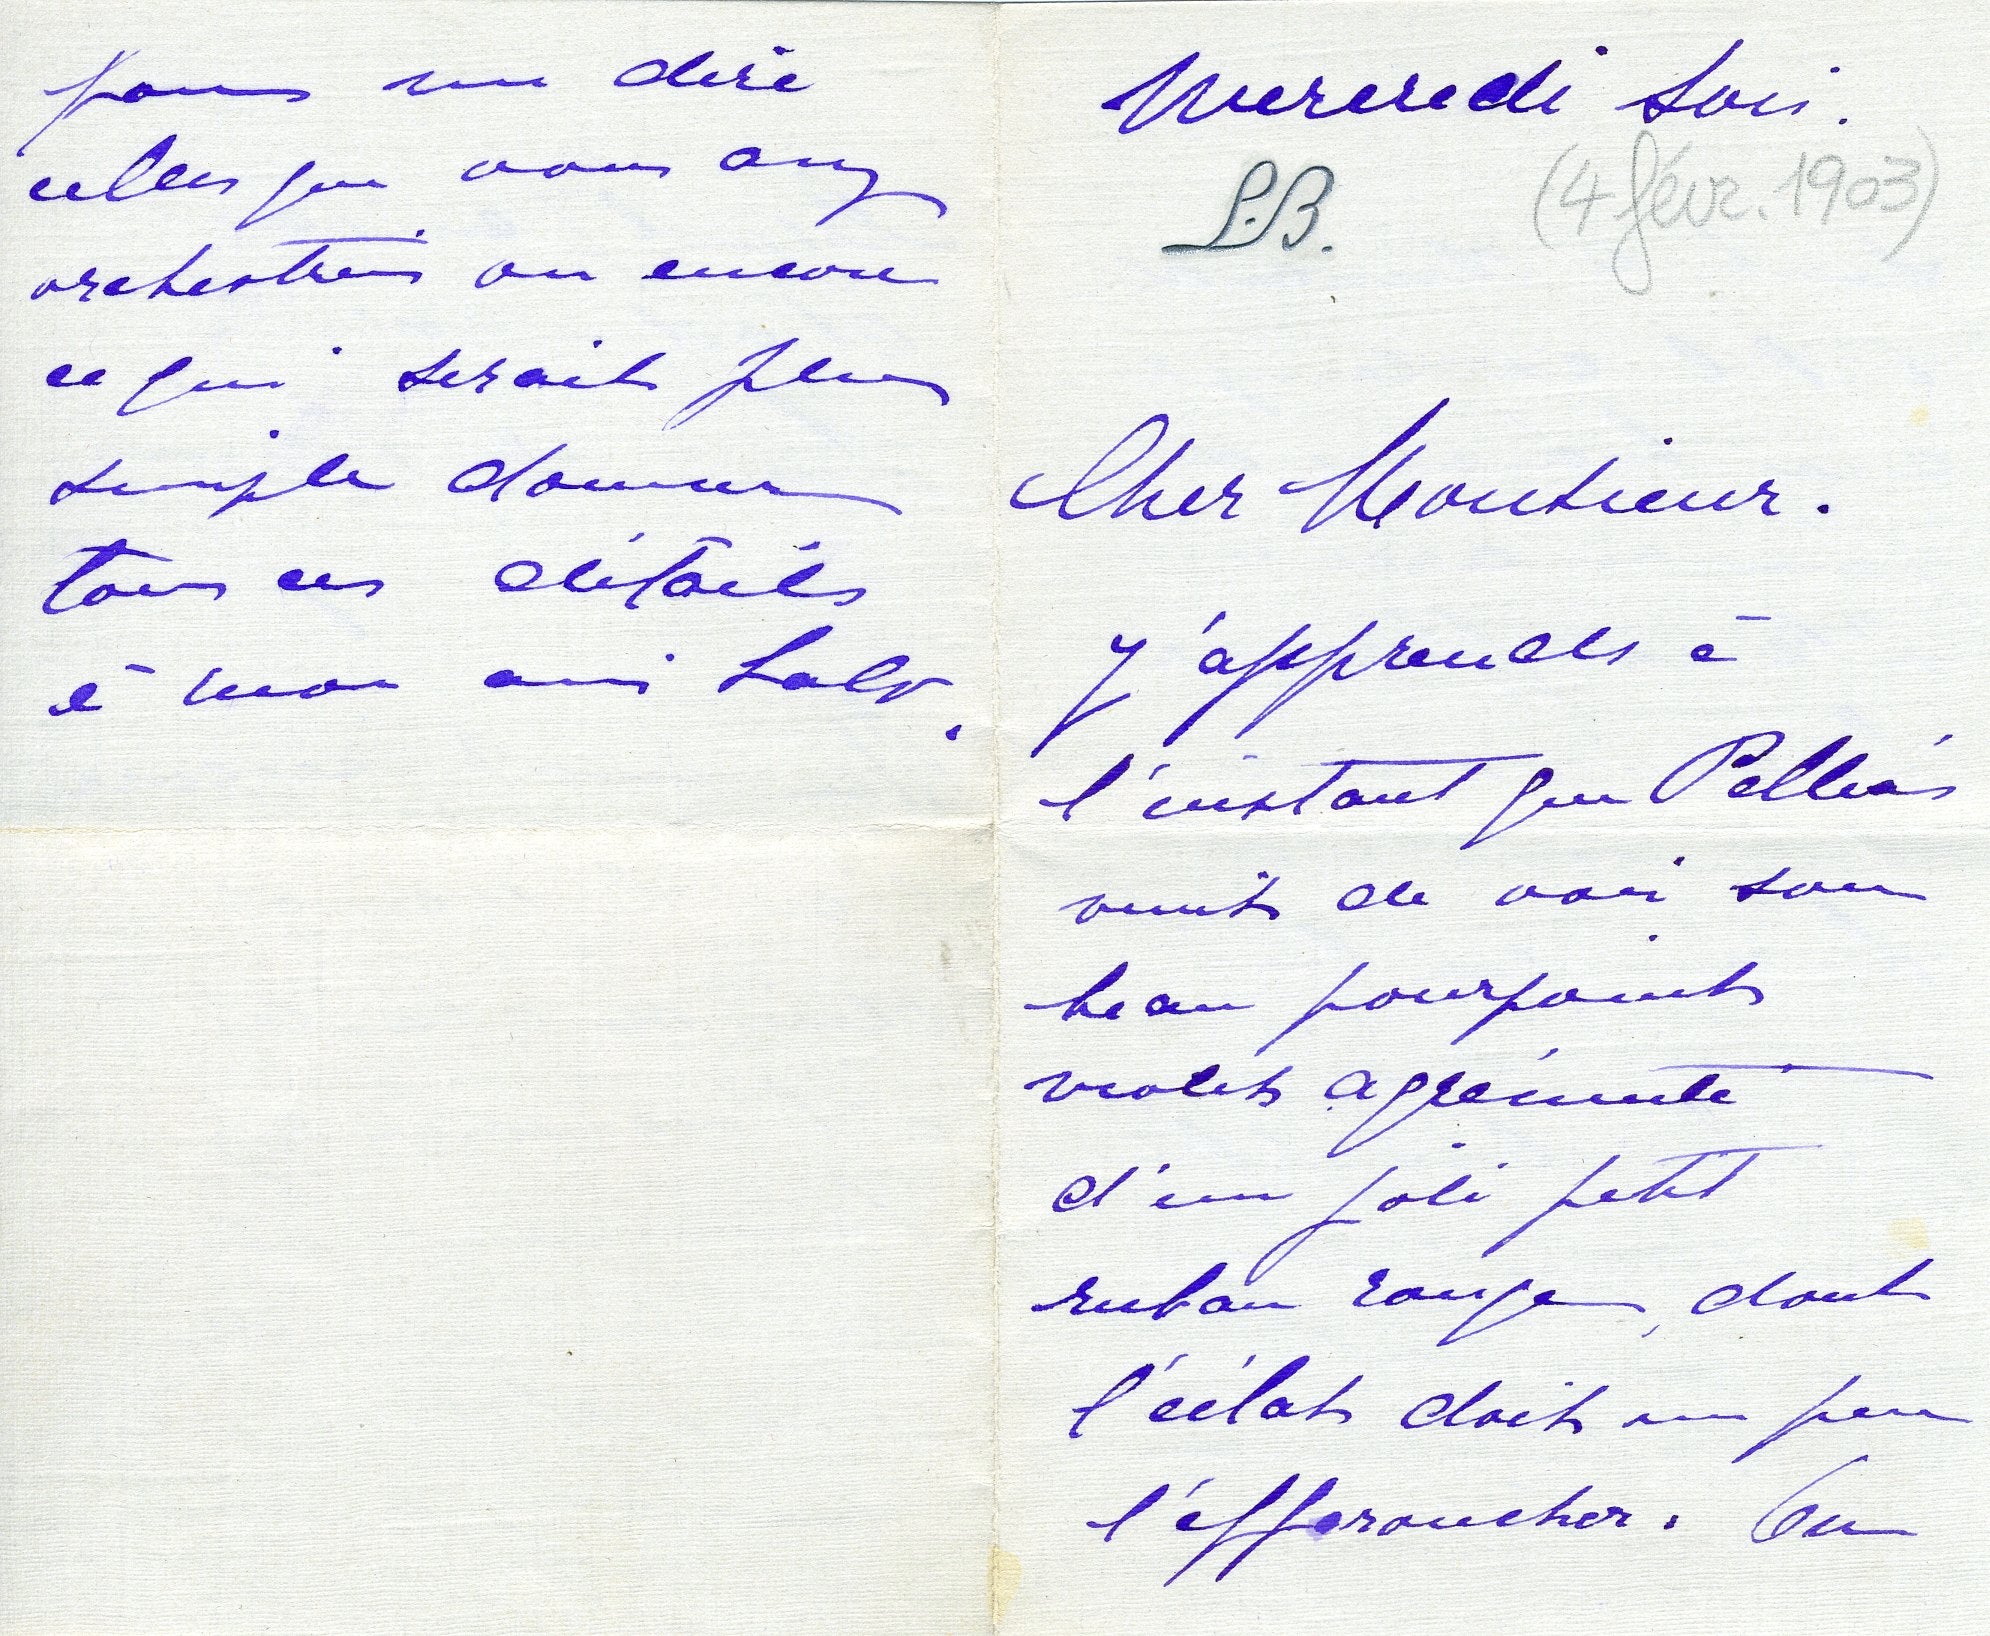 Mercredi soir.
L.B.
(4 févr. 1903)
Cher Monsieur.
J'apprends à
l'instant que Pelléas
vient de voir son
beau pourpoint
violet agrémenté
d'un joli petit
ruban rouge, dont
l'éclat doit un peu
l'effaroucher. On
pour me dire
celles que vous avez
orchestrées ou encore
ce qui serait plus
simple donner
tous ces détails
à mon ami